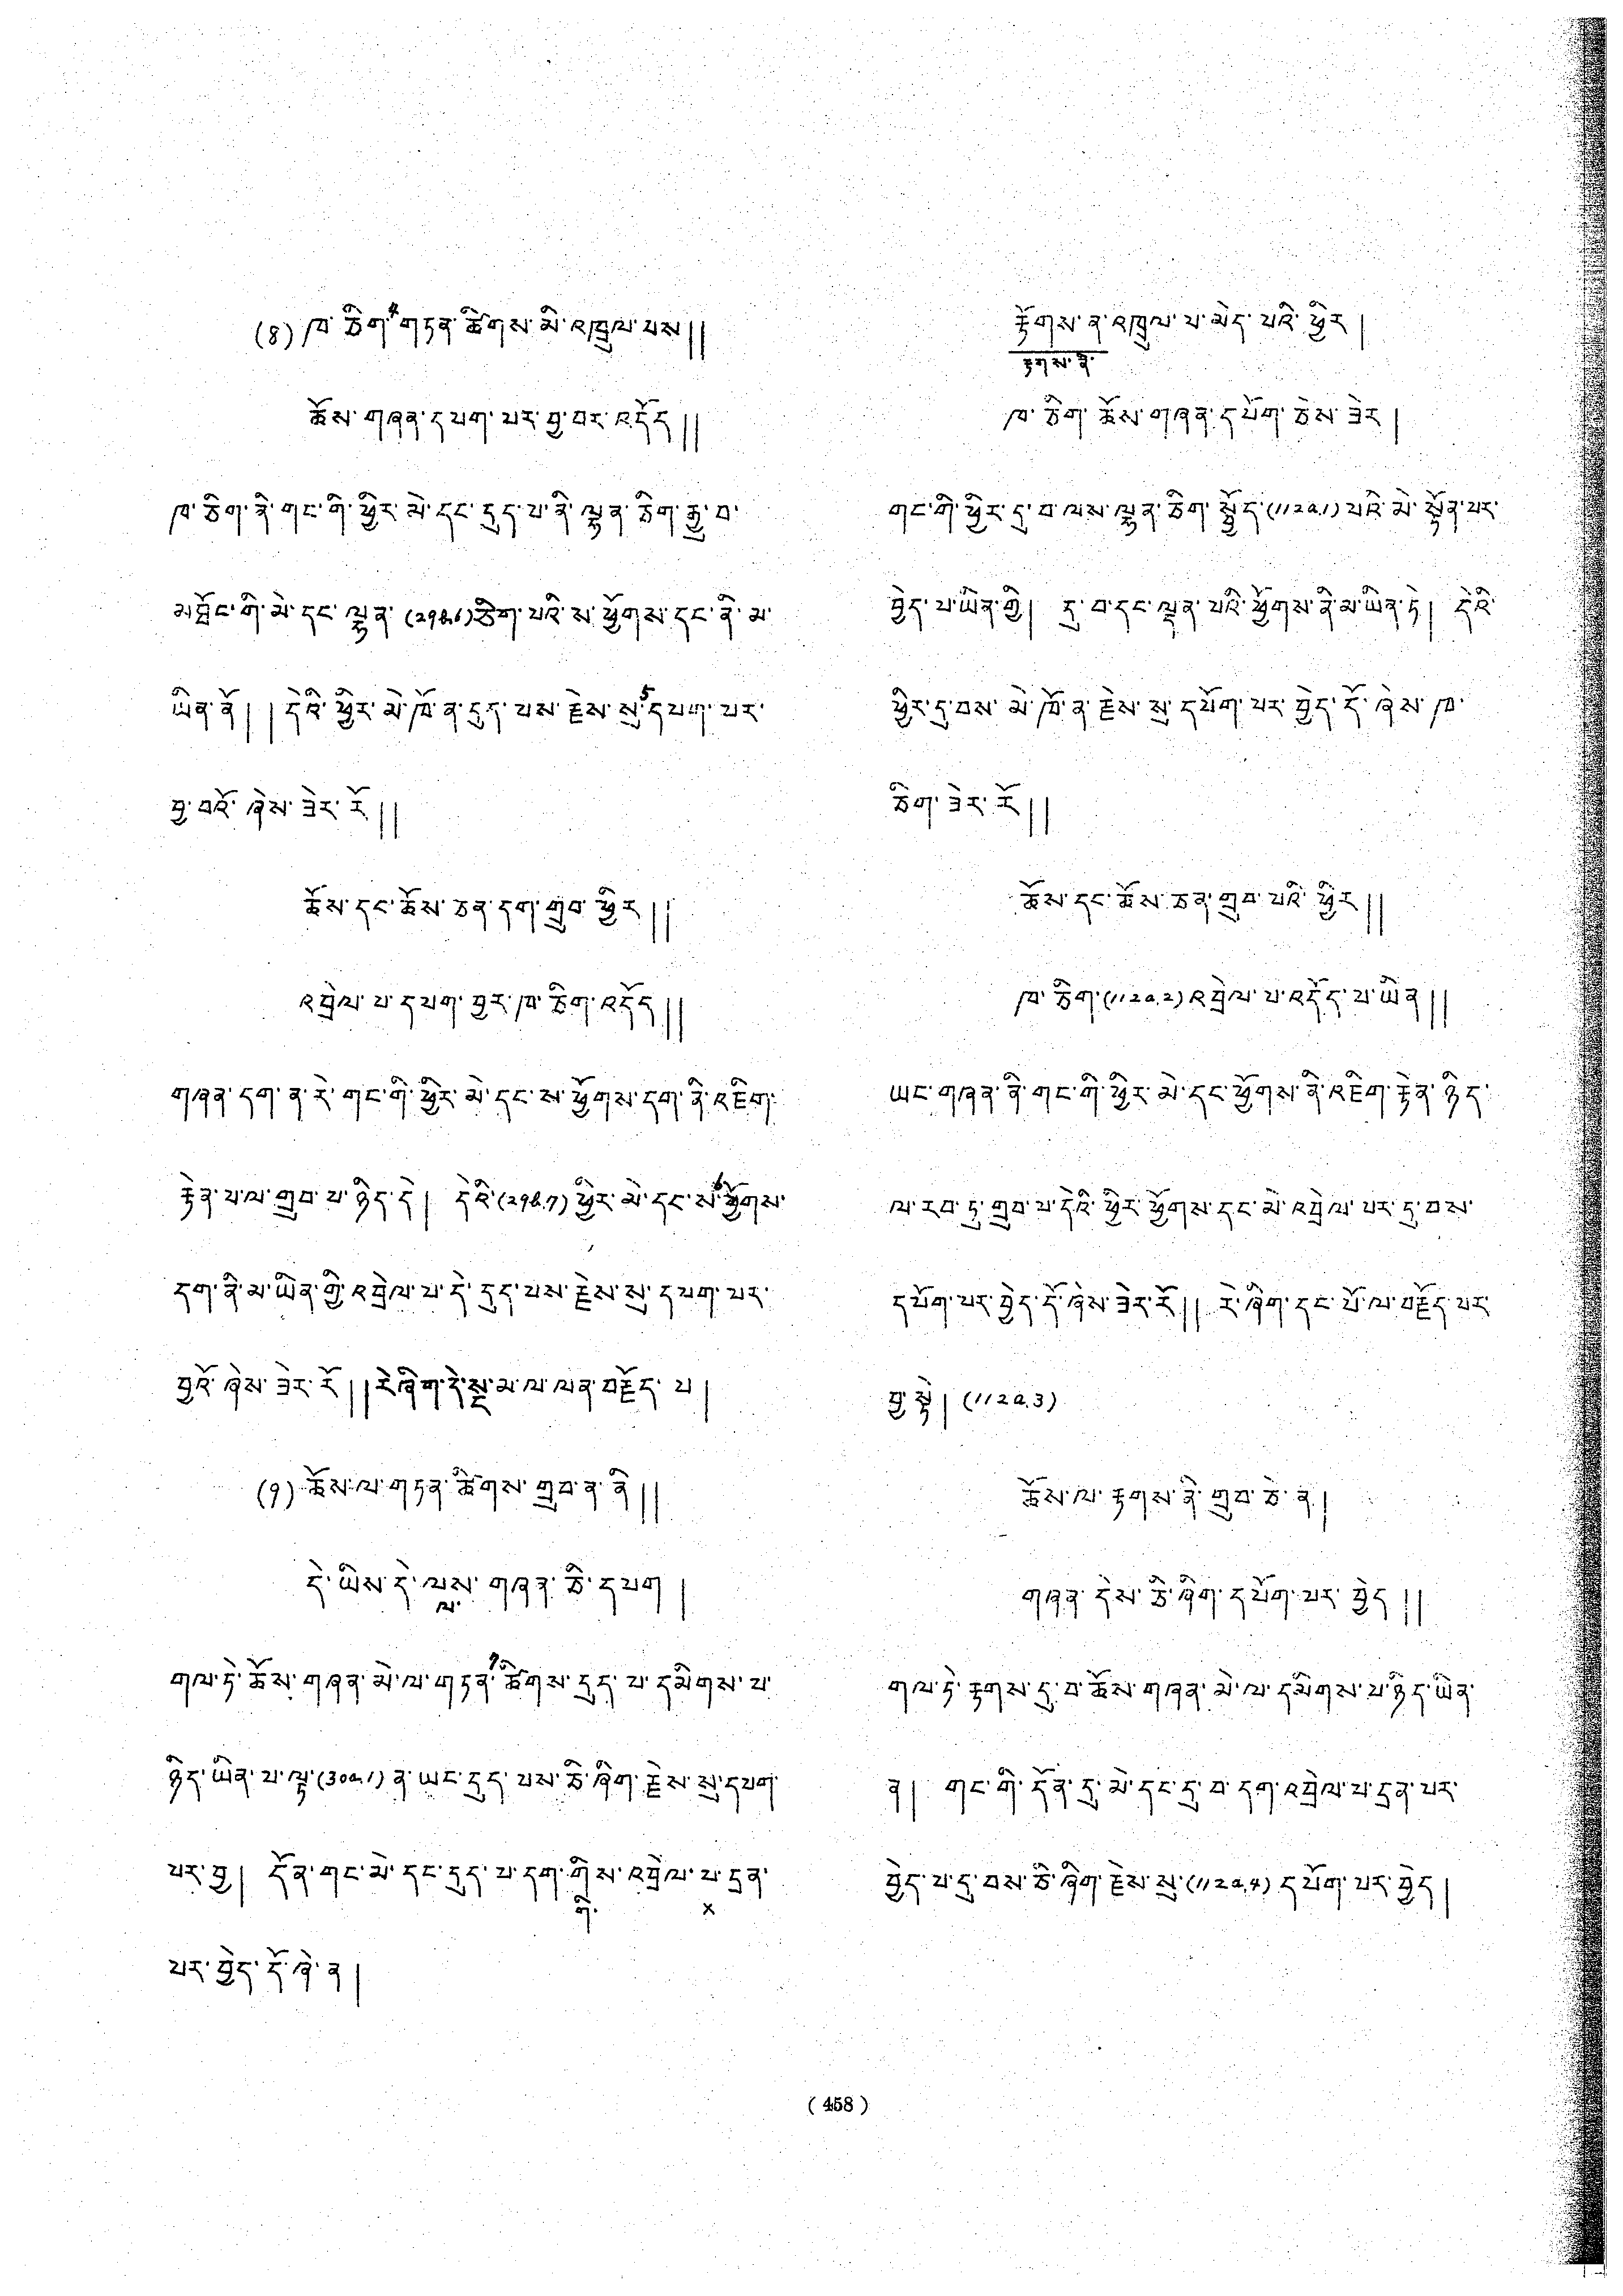 (8) ཁ་ཅིག་⁴གཏན་ཚིགས་མི་འཁྲུལ་པས།།
ཆོས་གཞན་དཔག་པར་བྱ་བར་འདོད།།
ཁ་ཅིག་ནི་གང་གི་ཕྱིར་མེ་དང་དུད་པ་ནི་ལྷན་ཅིག་རྒྱུ་བ་
མཐོང་གི་མེ་དང་ལྷན་(29b.6)ཅིག་པའི་ས་ཕྱོགས་དང་ནི་མ་
ཡིན་ནོ།། དེའི་ཕྱིར་མེ་ཁོ་ན་དུད་པས་རྗེས་སུ་⁵དཔག་པར་
བྱ་བའོ་ཞེས་ཟེར་རོ།།
ཆོས་དང་ཆོས་ཅན་དག་གྲུབ་ཕྱིར།།
འབྲེལ་པ་དཔག་བྱར་ཁ་ཅིག་འདོད།།
གཞན་དག་ན་རེ་གང་གི་ཕྱིར་མེ་དང་ས་ཕྱོགས་དག་ནི་འཇིག་
རྟེན་པ་ལ་གྲུབ་པ་ཉིད་དེ། དེའི་(29b.7)ཕྱིར་མེ་དང་ས་⁶ཕྱོགས་
དག་ནི་མ་ཡིན་གྱི་འབྲེལ་པ་དེ་དུད་པས་རྗེས་སུ་དཔག་པར་
བྱའོ་ཞེས་ཟེར་རོ།།རེ་ཞིག་དེ་སྔ་མ་ལ་ལན་བརྗོད་པ།
(9) ཆོས་ལ་གཏན་ཚིགས་གྲུབ་ན་ནི།།
དེ་ཡིས་དེ་ལས་གཞན་ཅི་དཔག།
ལ་
གལ་ཏེ་ཆོས་གཞན་མེ་ལ་གཏན་⁷ཚིགས་དུད་པ་དམིགས་པ་
ཉིད་ཡིན་པ་ལྟ་(30a.1)ན་ཡང་དུད་པས་ཅི་ཞིག་རྗེས་སུ་དཔག་
པར་བྱ། དོན་གང་མེ་དང་དུད་པ་དག་གིས་འབྲེལ་པ་དྲན་
གི་ x
པར་བྱེད་དོ་ཞེ་ན།
རྟོགས་ན་འཁྲུལ་པ་མེད་པའི་ཕྱིར།
རྟགས་ནི་
ཁ་ཅིག་ཆོས་གཞན་དཔོག་ཅེས་ཟེར།
གང་གི་ཕྱིར་དུ་བ་ལས་ལྷན་ཅིག་སྤྱོད་(112a.1)པའི་མེ་སྟོན་པར་
བྱེད་པ་ཡིན་གྱི། དུ་བ་དང་ལྡན་པའི་ཕྱོགས་ནི་མ་ཡིན་ཏེ། དེའི་
ཕྱིར་དུ་བས་མེ་ཁོ་ན་རྗེས་སུ་དཔོག་པར་བྱེད་དོ་ཞེས་ཁ་
ཅིག་ཟེར་རོ།།
ཆོས་དང་ཆོས་ཅན་གྲུབ་པའི་ཕྱིར།།
ཁ་ཅིག་(112a.2)འབྲེལ་པ་འདོད་པ་ཡིན།།
ཡང་གཞན་ནི་གང་གི་ཕྱིར་མེ་དང་ཕྱོགས་ནི་འཇིག་རྟེན་ཉིད་
ལ་རབ་ཏུ་གྲུབ་པ་དེའི་ཕྱིར་ཕྱོགས་དང་མེ་འབྲེལ་པར་དུ་བས་
དཔོག་པར་བྱེད་དོ་ཞེས་ཟེར་རོ།། རེ་ཞིག་དང་པོ་ལ་བརྗོད་པར་
བྱ་སྟེ། (112a.3)
ཆོས་ལ་རྟགས་ནི་གྲུབ་ཅེ་ན།
གཞན་དེས་ཅི་ཞིག་དཔོག་པར་བྱེད།།
གལ་ཏེ་རྟགས་དུ་བ་ཆོས་གཞན་མེ་ལ་དམིགས་པ་ཉིད་ཡིན་
ན། གང་གི་དོན་དུ་མེ་དང་དུ་བ་དག་འབྲེལ་པ་དྲན་པར་
བྱེད་པ་དུ་བས་ཅི་ཞིག་རྗེས་སུ་(112a.4)དཔོག་པར་བྱེད།
( 458 )